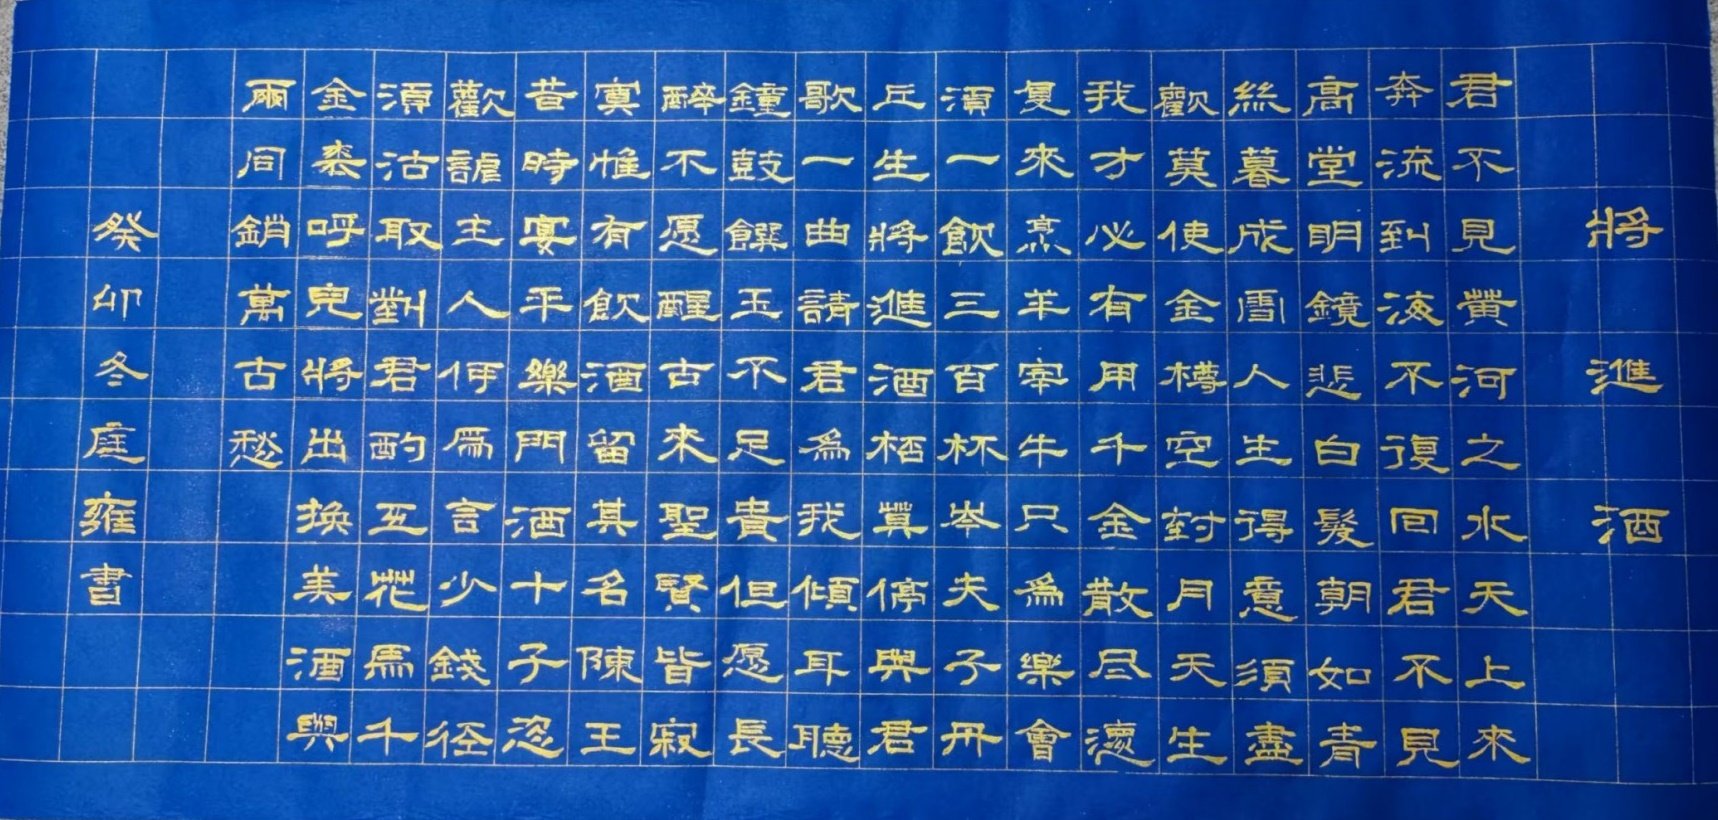 將進酒
君不見黃河之水天上來
奔流到海不復回君不見
高堂明鏡悲白髮朝如青
絲暮成雪人生得意須盡
歡莫使金樽空對月天生
我才必有用千金散尽還
复來烹羊宰牛只為樂會
須一飲三百杯岑夫子丹
丘生將進酒桮莫停與君
歌一曲請君為我傾耳聽
鐘鼓饌玉不足貴但愿長
醉不愿醒古來聖賢皆寂
寞惟有飲酒留其名陳王
昔時宴平樂門酒十子恣
歡謔主人何為言少錢径
須沽取對君酌五花馬千
金裘呼兒將出換美酒與
爾同銷萬古愁
癸卯冬庭雍書